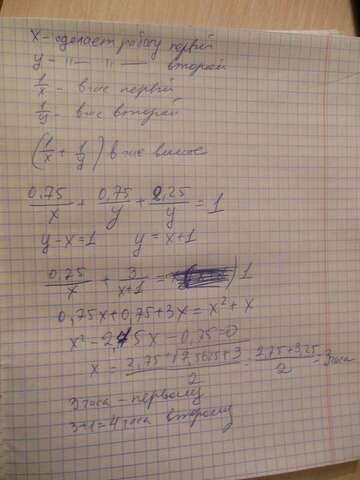 x - сделает работу первый
y - " - " - второй
1/x - в час первый
1/y - в час второй
(1/x + 1/y) в час вместе
0,75/x + 0,75/y + 2,25/y = 1
y-x=1 y=x+1
0,75/x + 3/x+1 = 1
0,75x+0,75+3x=x²+x
x²-2,75x-0,75=0
x = 2,75+√7,5625+3/2 = 2,75+3,25/2 = 3 часа
3 часа - первому
3+1=4 часа второму